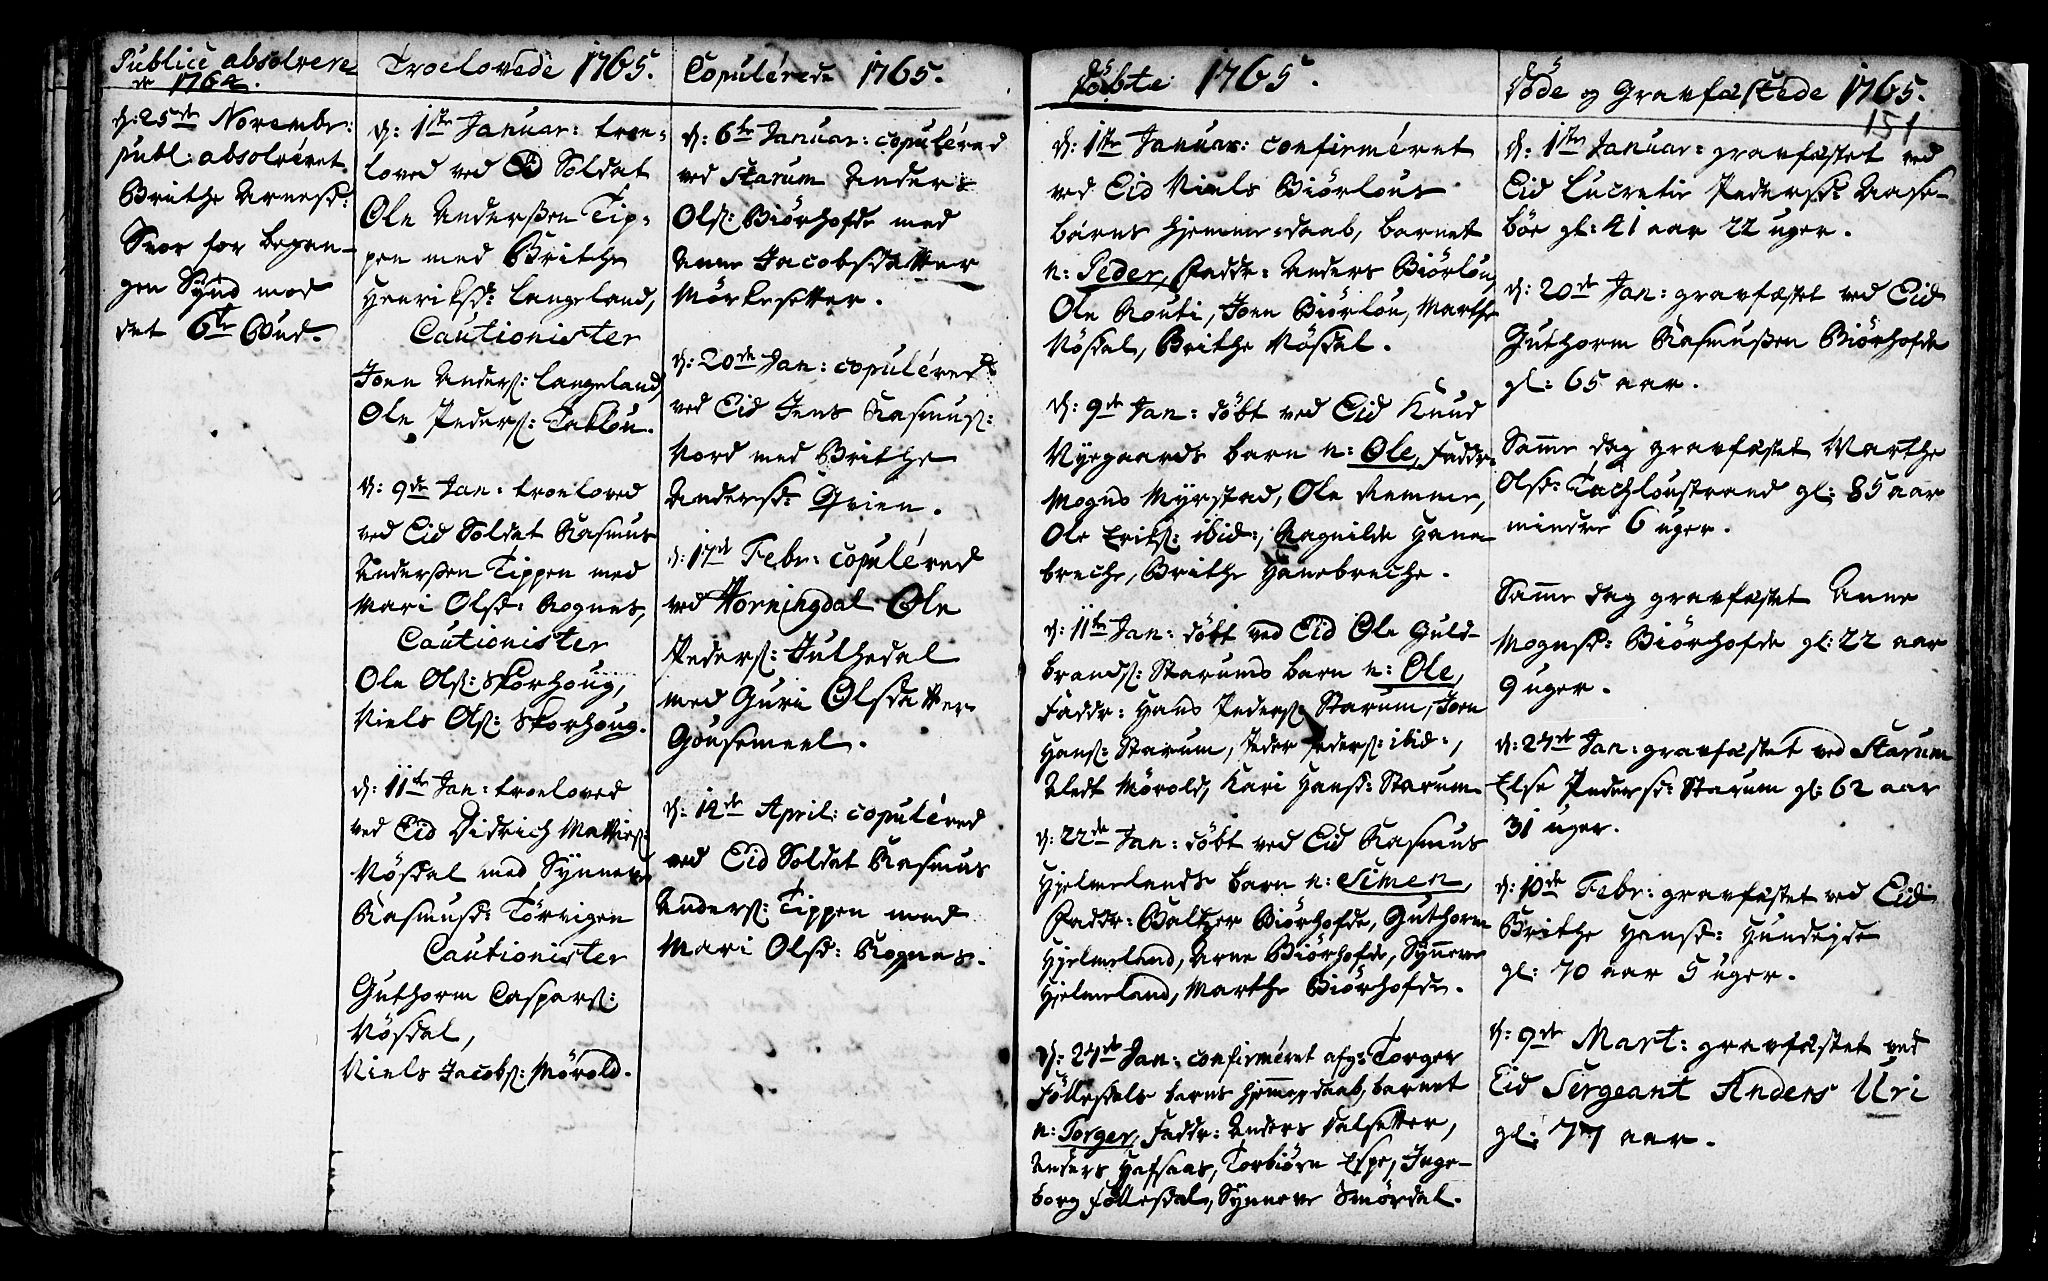 Publicè absolvere
de 1764.
d: 25de Novembr:
publ: absolveret
Brithe Arnesd:
Svor for began-
gen Synd mod
det 6te Bud.
Troelovede 1765.
d: 1ste Januar: troe-
loved ved Eid Soldat
Ole Anderßen Tip-
pen med Brithe
Henriksd: Langeland,
Cautionister
Joen Anders: Langeland,
Ole Peders: Taklou.
d: 9de Jan: troeloved
ved Eid Soldat Rasmus
Anderßen Tippen med
Mari Olsd: Rognes,
Cautionister
Ole Ols: Skorhoug,
Niels Ols: Skorhoug.
d: 11te Jan: troeloved
ved Eid Didrich Mathies:
Nøsdal med Synneve
Rasmusd: Tørvigen
Cautionister
Guthorm Caspars:
Nøsdal,
Niels Jacobs: Mørold.
Copulérede 1765.
d: 6te Januar: copuléred
ved Starum Anders
Ols: Biørhofde med
Anne Jacobsdatter
Mørkesetter.
d: 20de Jan: copuléred
ved Eid Jens Rasmus:
Nord med Brithe
Andersd: Qvien.
d: 17de Febr: copuléred
ved Horningdal Ole
Peders: Juthedal
med Guri Olsdatter
Gousemeel.
d: 14de April: copuléred
ved Eid Soldat Rasmus
Anders: Tippen med
Mari Olsd: Rognes.
Døbte 1765.
d: 1ste Januar: confirméret
ved Eid Niels Biørlous
barns hjemme-daab, barnet
n: Peder, Faddr: Anders Biørlou,
Ole Routi, Joen Biørlou, Marthe
Nøsdal, Brithe Nøsdal.
d: 9de Jan: døbt ved Eid Knud
Nyegaards barn n: Ole, Faddr:
Mogns Myrstad, Ole Remme,
Ole Eriks: ibid:, Ragnilde Hane-
breche, Brithe Hanebreche.
d: 11te Jan: døbt ved Eid Ole Guld-
brands: Starums barn n: Ole,
Faddr: Hans Peders: Starum, Joen
Hans: Starum, Peder Peders: ibid:,
Aledt Mørold, Kari Hansd: Starum
d: 22de Jan: døbt ved Eid Rasmus
Hjelmelands barn n: Simen,
Faddr: Baltzer Biørhofde, Guthorm
Hjelmeland, Arne Biørhofde, Synneve
Hjelmeland, Marthe Biørhofde.
d: 27de Jan: confirméret afg: Torger
Føllesdals barns hjemmedaab, barnet
n: Torger, Faddr: Anders Dalsetter,
Anders Hafsaas, Torbiørn Espe, Inge-
borg Føllesdal, Synneve Smørdal.
Døde og Gravfæstede 1765.
151
d: 1ste Januar: gravfæstet ved
Eid Lucretie Pedersd: Aase-
bøe gl: 41 aar 22 uger.
d: 20de Jan: gravfæstet ved Eid
Guthorm Rasmußen Biørhofde
gl: 65 aar.
Samme dag gravfæstet Marthe
Olsd: Tachloustrand gl: 85 aar
mindre 6 uger.
Samme dag gravfæstet Anne
Mognsd: Biørhofde gl: 22 aar
9 uger.
d: 27de Jan: gravfæstet ved Starum
Else Pedersd: Starum gl: 62 aar
31 uger.
d: 10de Febr: gravfæstet ved Eid
Brithe Hansd: Hundejde
gl: 70 aar 5 uger.
d: 9de Mart: gravfæstet ved
Eid Sergeant Anders Uri
gl: 77 aar.